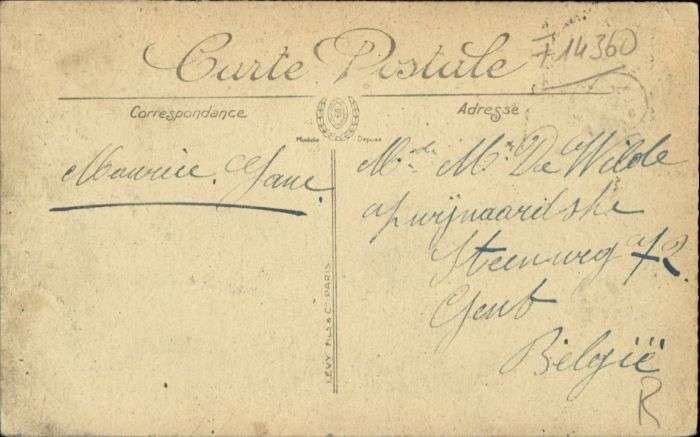 Carte Postale
F 14360
Correspondance
Adresse
Modèle Déposé
Maurice. Jane.
M. de M. De Wilde
op wijnaardsche
Steenweg 72
Gent
België
R
LÉVY FILS & Cie PARIS